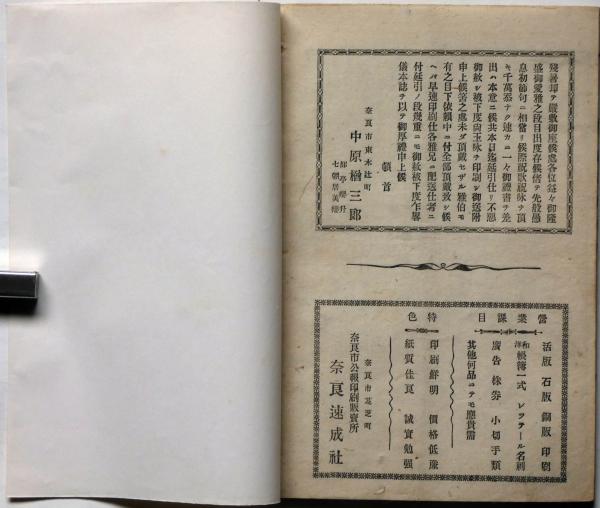 殘暑却テ嚴敷御座候處各位益々御隆
盛御愛雅之段目出度存候偖テ先般愚
息初節句ニ相當リ候際祝歌祝咏ヲ頂
キ千萬忝ナク速カニ一々御禮書ヲ差
出ハ本意ニ候共本日迄延引仕リ不惡
御赦シ被下度尙玉咏ヲ印刷シ御送附
申上候筈之處未ダ頂戴セザル雅伯モ
有之目下依賴中ニ付全部頂戴致シ候
ヘバ早速印刷仕各雅兄ニ配送仕者ニ
付延引ノ段幾重ニモ御赦被下度乍畧
儀本誌ヲ以テ御厚禮申上候
頓首
奈良市東木辻町
中原楢三郎
營業課目
活版 石版 銅版 印刷
和洋帳簿一式 レツテール名刺
廣告 株券 小切手類
其他何品ニテモ應貴需
特色
印刷鮮明 價格低廉
紙質佳良 誠實勉强
奈良市芝町
奈良市公報印刷販賣所
奈良速成社